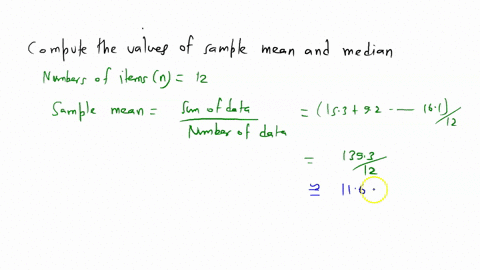 Compute the values of sample mean and median
Numbers of items (n) = 12
Sample mean = Sum of data / Number of data = (15.3 + 9.2 - — 16.1) / 12
= 139.3 / 12
≅ 11.6